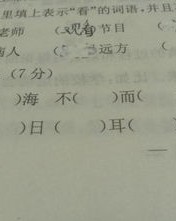 里填上表示“看”的词语,并且
老师 (观看)节目 (
人 ( )远方 (
(7分)
)海 不( )而(
)日( )耳(